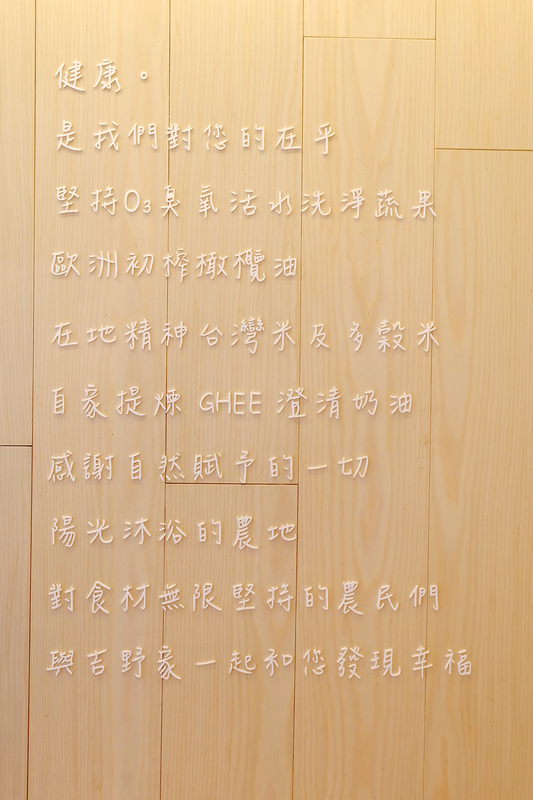 健康。
是我們對您的在乎
堅持O₃臭氧活水洗淨蔬果
歐洲初榨橄欖油
在地精神台灣米及多穀米
自家提煉 GHEE 澄清奶油
感謝自然賦予的一切
陽光沐浴的農地
對食材無限堅持的農民們
與吉野家一起和您發現幸福